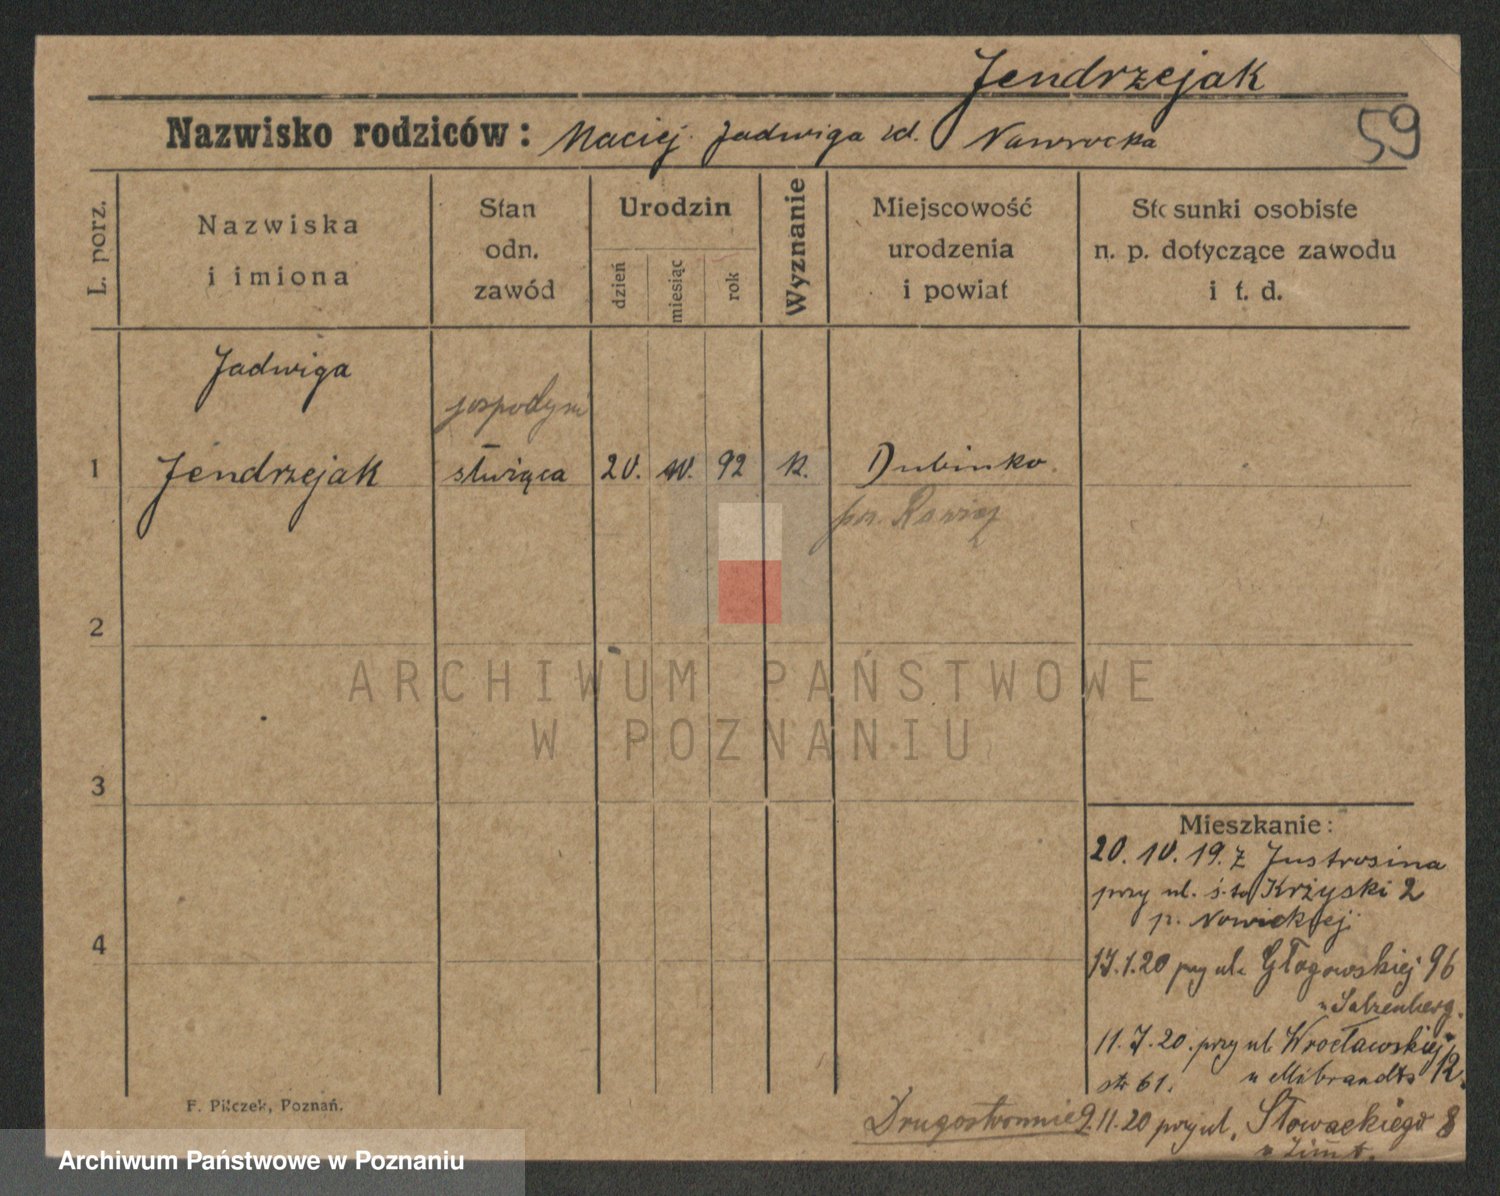 Jendrzejak
Nazwisko rodziców: Maciej Jadwiga zd. Nawrocka
59
L. porz.
Nazwiska
i imiona
Stan
odn.
zawód
Urodzin
dzień
miesiąc
rok
Wyznanie
Miejscowość
urodzenia
i powiat
Stosunki osobiste
n. p. dotyczące zawodu
i t. d.
Jadwiga
gospodyni
1 Jendrzejak służąca 20. 10. 92 k. Dubinko
pow. Rawicz
2
3
4
ARCHIWUM PAŃSTWOWE
W POZNANIU
Mieszkanie:
20. 10. 19. z Jutrosina
przy ul. Krzyski 2
p. Nowickiej
17.1.20 przy ul. Głogowskiej 96
11.7.20. przy ul. Wrocławskiej 12.
str 61.
Drugostronnie 9.11.20 przy ul. Słowackiego 8
F. Pilczek, Poznań.
Archiwum Państwowe w Poznaniu